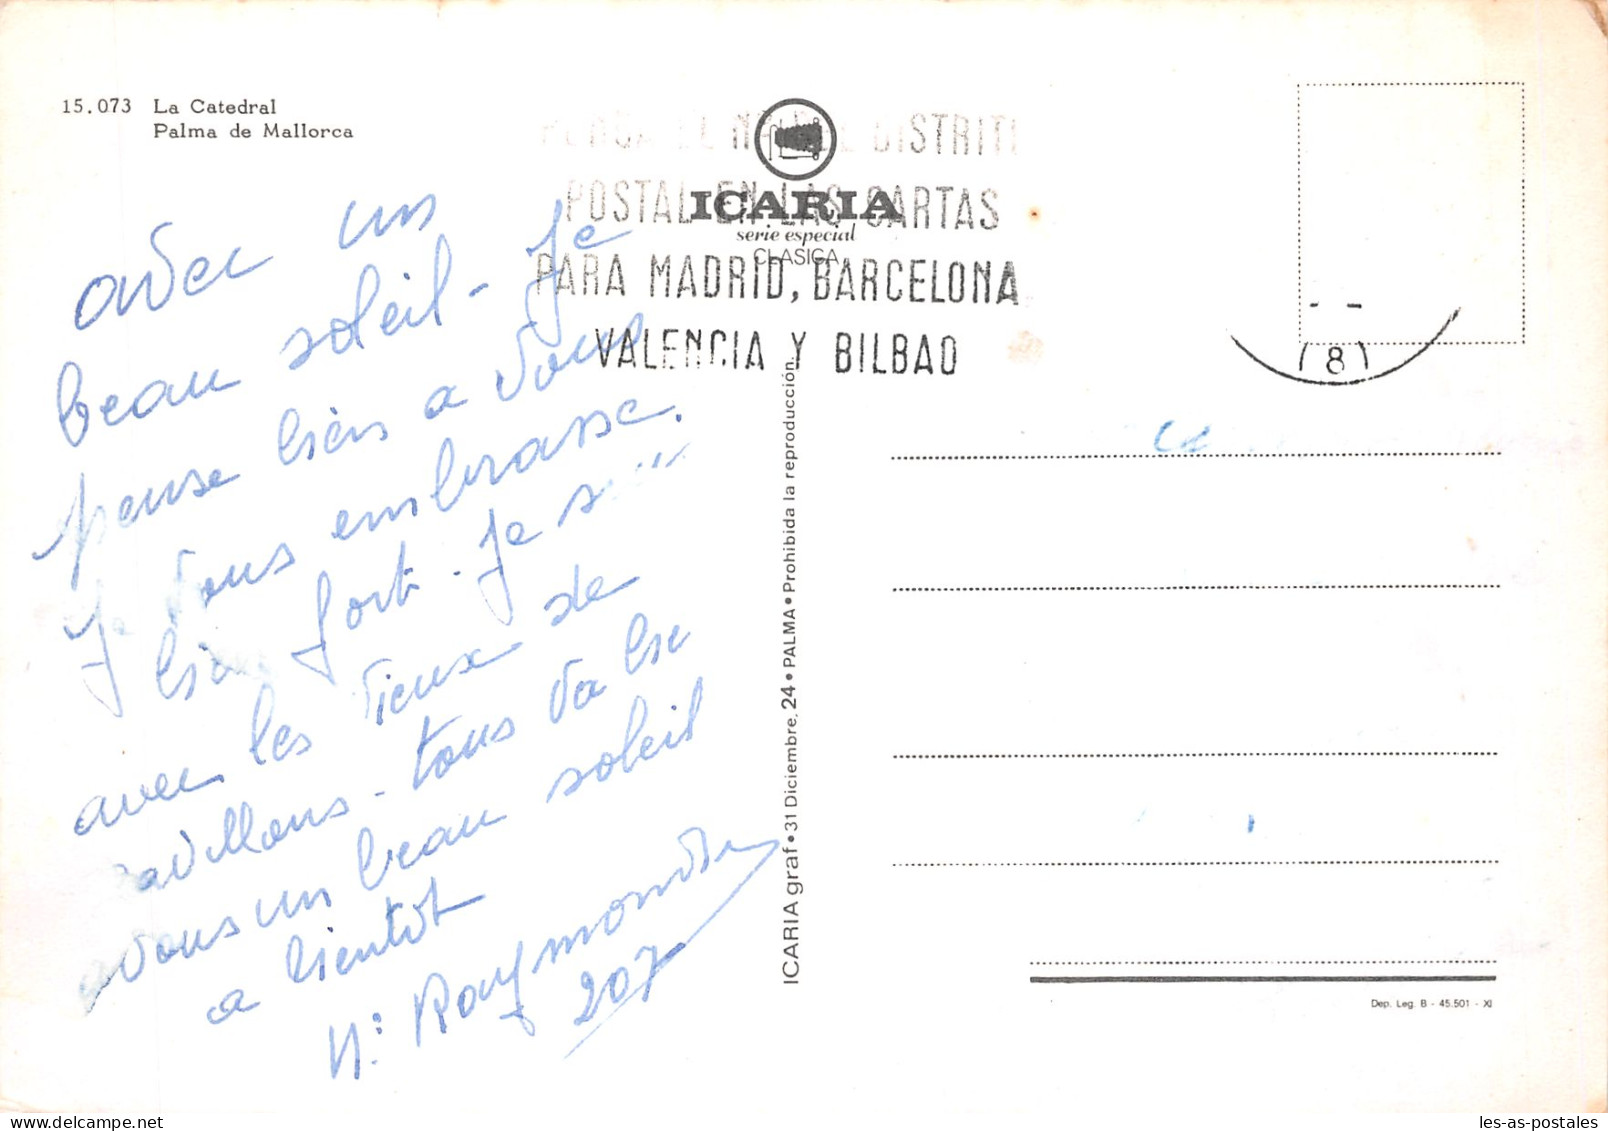 15.073 La Catedral
Palma de Mallorca
EL DISTRITO
POSTAL EN LAS CARTAS
PARA MADRID, BARCELONA
VALENCIA Y BILBAO
ICARIA
serie especial
CLASICA
(8)
avec un
beau soleil - Je
pense bien a vous
Je vous embrasse.
bien fort. Je
avec les vieux de
tous va bien
vous un beau soleil
a bientôt
Raymonde
207
ICARIA graf • 31 Diciembre, 24 • PALMA • Prohibida la reproducción.
Dep. Leg. B - 45.501 - XI
les-as-postales